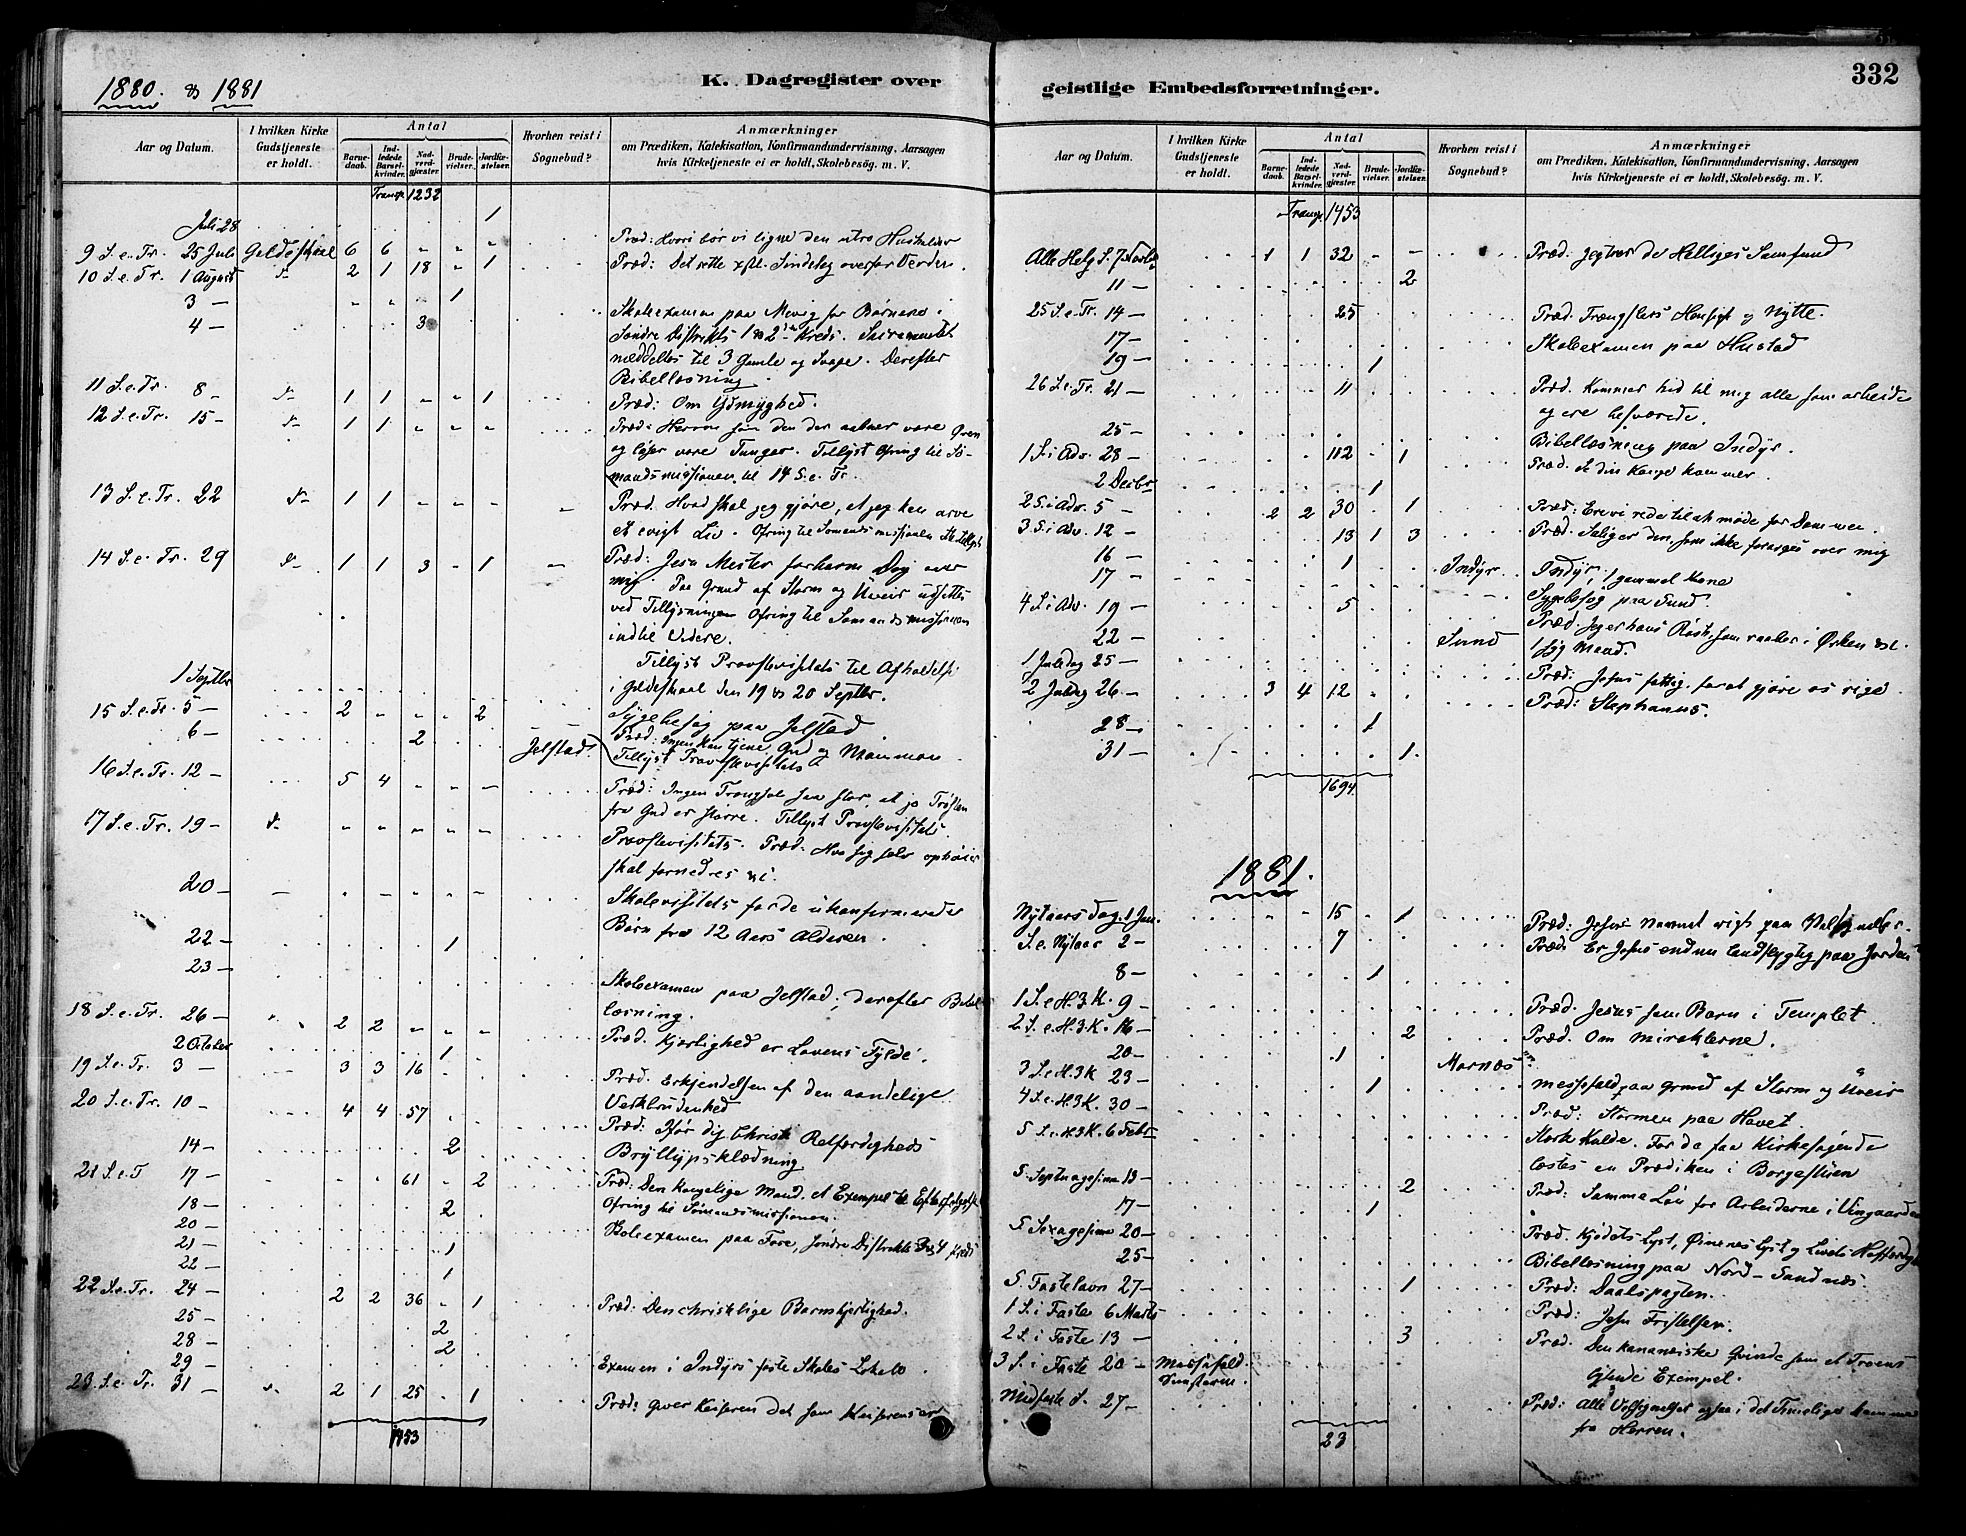 1880. & 1881
K. Dagregister over
geistlige Embedsforretninger.
332
Aar og Datum.
I hvilken Kirke Gudstjeneste er holdt.
Antal
Barnedaab.
Indledede Barselkvinder.
Nadverdgjæster.
Brudevielser.
Jordfæstelser.
Hvorhen reist i Sognebud?
Anmærkninger
om Prædiken, Katekisation, Konfirmandundervisning, Aarsagen
hvis Kirketjeneste ei er holdt, Skolebesøg. m. V.
Transp. 1232
Juli 28 1
9 S. e. Tr. 25 Juli Gildeskaal 6 6 " " " Præd: Hvori bør vi ligne den utro Husholder
10 S. e. Tr. 1 August 2 1 18 " 1 Præd: Det rette Sindelag overfor Verden.
3 — " " " 1
4 — 3 Skoleexamen paa Mevig for Børnene i
Søndre Distrikts 1 & 2den Kreds. Sacramentet
meddeltes til 3 Gamle og Svage. Derefter
Bibellæsning.
11 S. e. Tr. 8 — 1 1 " " 1 Præd: Om Ydmyghed.
12 S. e. Tr. 15 — 1 1 " " " Præd: Herren som den der aabner vore Øren
og løser vore Tunger. Tillyst Ofring til Sø-
mandsmissionen til 14 S. e. Tr.
13 S. e. Tr. 22 1 1 " " " Præd. Hvad skal jeg gjøre, at jeg kan arve
et evigt Liv. Ofring til Sømandsmissionen
14 S. e. Tr. 29 1 1 3 " 1 Præd: Jesu Mester forbarm Dig over
mig. Paa Grund af Storm og Uveir udsættes
ved Tillysningen Ofring til Sømandsmissionen
indtil Videre.
1 Septbr Tillyst Provstevisitats til Afholdelse
i Gildeskaal den 19 & 20 Septbr.
15 S. e. Tr. 5 — 2 " " " 2 Sygebesøg paa Jelstad
6 — 2 Jelstad Præd: Ingen kan tjene Gud og Mammon.
Tillyst Provstevisitats
16 S. e. Tr. 12 — 5 4 " " — Præd: Ingen Trængsel saa stor, at jo Trøsten
fra Gud er større. Tillyst Provstevisitats.
17 S. e. Tr. 19 — " " " " " Provstevisitats. Præd: Hvo sig selv ophøier
skal fornedres
20 — Skolevisitats for de ukonfirmerede
Børn fra 12 Aars Alderen.
22 — 1
23 — Skoleexamen paa Jelstad; derefter Bibel-
læsning.
18 S. e. Tr. 26 — 2 2 " " " Præd. Kjærlighed er Lovens Fylde.
2 October 1
19 S. e. Tr. 3 — 3 3 16 Præd. Erkjendelsen af den aandelige
20 S. e. Tr. 10 — 4 4 57 Præd: Ifør dig Christi Retfærdigheds
14 — 2 Bryllupsklædning
21 S. e. T 17 — " " 61 " 2 Præd: Den kongelige Mand et Exempel til Efterfølgelse
18 — 2 Ofring til Sømandsmissionen.
20 — Skoleexamen paa Fore, Søndre Distrikts 3 & 4 Kreds
21 — 1
22 — 1
22 S. e. Tr. 24 — 2 2 36 " 1 Præd: Den christelige Barmhjertighed.
25 — 2
28 — 2
29 — Examen i Indyrs faste Skoles Lokale.
23 S. e. Tr. 31 — 2 1 25 1 Præd: Giver Keiseren det som Keiserens er
1453
Aar og Datum.
I hvilken Kirke Gudstjeneste er holdt.
Antal
Barnedaab.
Indledede Barselkvinder.
Nadverdgjæster.
Brudevielser.
Jordfæstelser.
Hvorhen reist i Sognebud?
Anmærkninger
om Prædiken, Katekisation, Konfirmandundervisning, Aarsagen
hvis Kirketjeneste ei er holdt, Skolebesøg. m. V.
Transp 1453
Alle Helg S. 7 Novbr 1 1 32 " — Præd: Jeg troer de Helliges Samfund
11 — 2
25 S. e. Tr. 14 — 25 Præd. Trængslers Hensigt og Nytte.
17 — Skoleexamen paa Hustad
19 — 1
26 S. e. Tr. 21 — 11 Præd. Kommer hid til mig alle som arbeide
og ere besværede.
25 — Bibellæsning paa Indyr.
1 S. i Adv. 28 — 112 1 Præd. Se din Konge kommer.
2 Decbr 1
2 S. i Adv. 5 — 2 2 30 1 Præd: Ere vi rede til at møde for Dommen.
3 S. i Adv. 12 — 13 1 3 Præd: Salig er den, som ikke forarges over mig
16 — 1 Indyr Indyr, 1 gammel Kone
17 — Sygebesøg paa Sund.
4 S. i Adv. 19 — 5 Præd. Jeg er hans Røst, som raaber i Ørken
22 — Sund 1 Sÿg Mand.
1 Juledag 25 — Præd: Jesus fattig for at gjøre os rige.
2 Juledag 26 — 3 4 12 Præd: Stephanus.
28 — 1
31 — 1
1694
1881.
Nytaarsdag 1 Jan. 15 " 1 Præd: Jesus Navnet
S. e. Nytaar 2 — 7 Præd: Er Jesus endnu landflygtig paa Jorden
8 — 1
1 S. e H. 3 K. 9 — Præd. Jesus som Barn i Templet.
2 S. e H. 3 K. 16 — 2 Præd. Om Miraklerne.
20 — 1 Marnæs
3 S. e H. 3 K 23 — 1 Messefald paa Grund af Storm og Uveir
4 S. e. H. 3 K. 30 — Præd: Stormen paa Havet.
5 S. e. H 3 K. 6 Febr Stærk Kulde. For de faa Kirkesøgende
læstes en Prædiken i Borgestuen
S. Septuagesima 13 — 2 Præd: Samme Løn for Arbeiderne i Vingaarden
17 — 1
S Sexagesima 20 — Præd. Kjødets Lyst, Øinenes Lyst og Livets Hoffærdighed
25 — Bibellæsning paa Nord-Sandnæs.
S. Fastelavn 27 — 1 Præd: Daabspagten.
1 S. i Faste 6 Marts Præd: Jesu Fristelser.
2 S. i Faste 13 — 3 Præd. Den kananæiske Qvinde som et Troens
lysende Exempel.
3 S. i Faste 20 — Messefald
Midfaste S. 27 — Præd: Alle Velsignelser ogsaa i det Timelige komme
fra Herren.
23